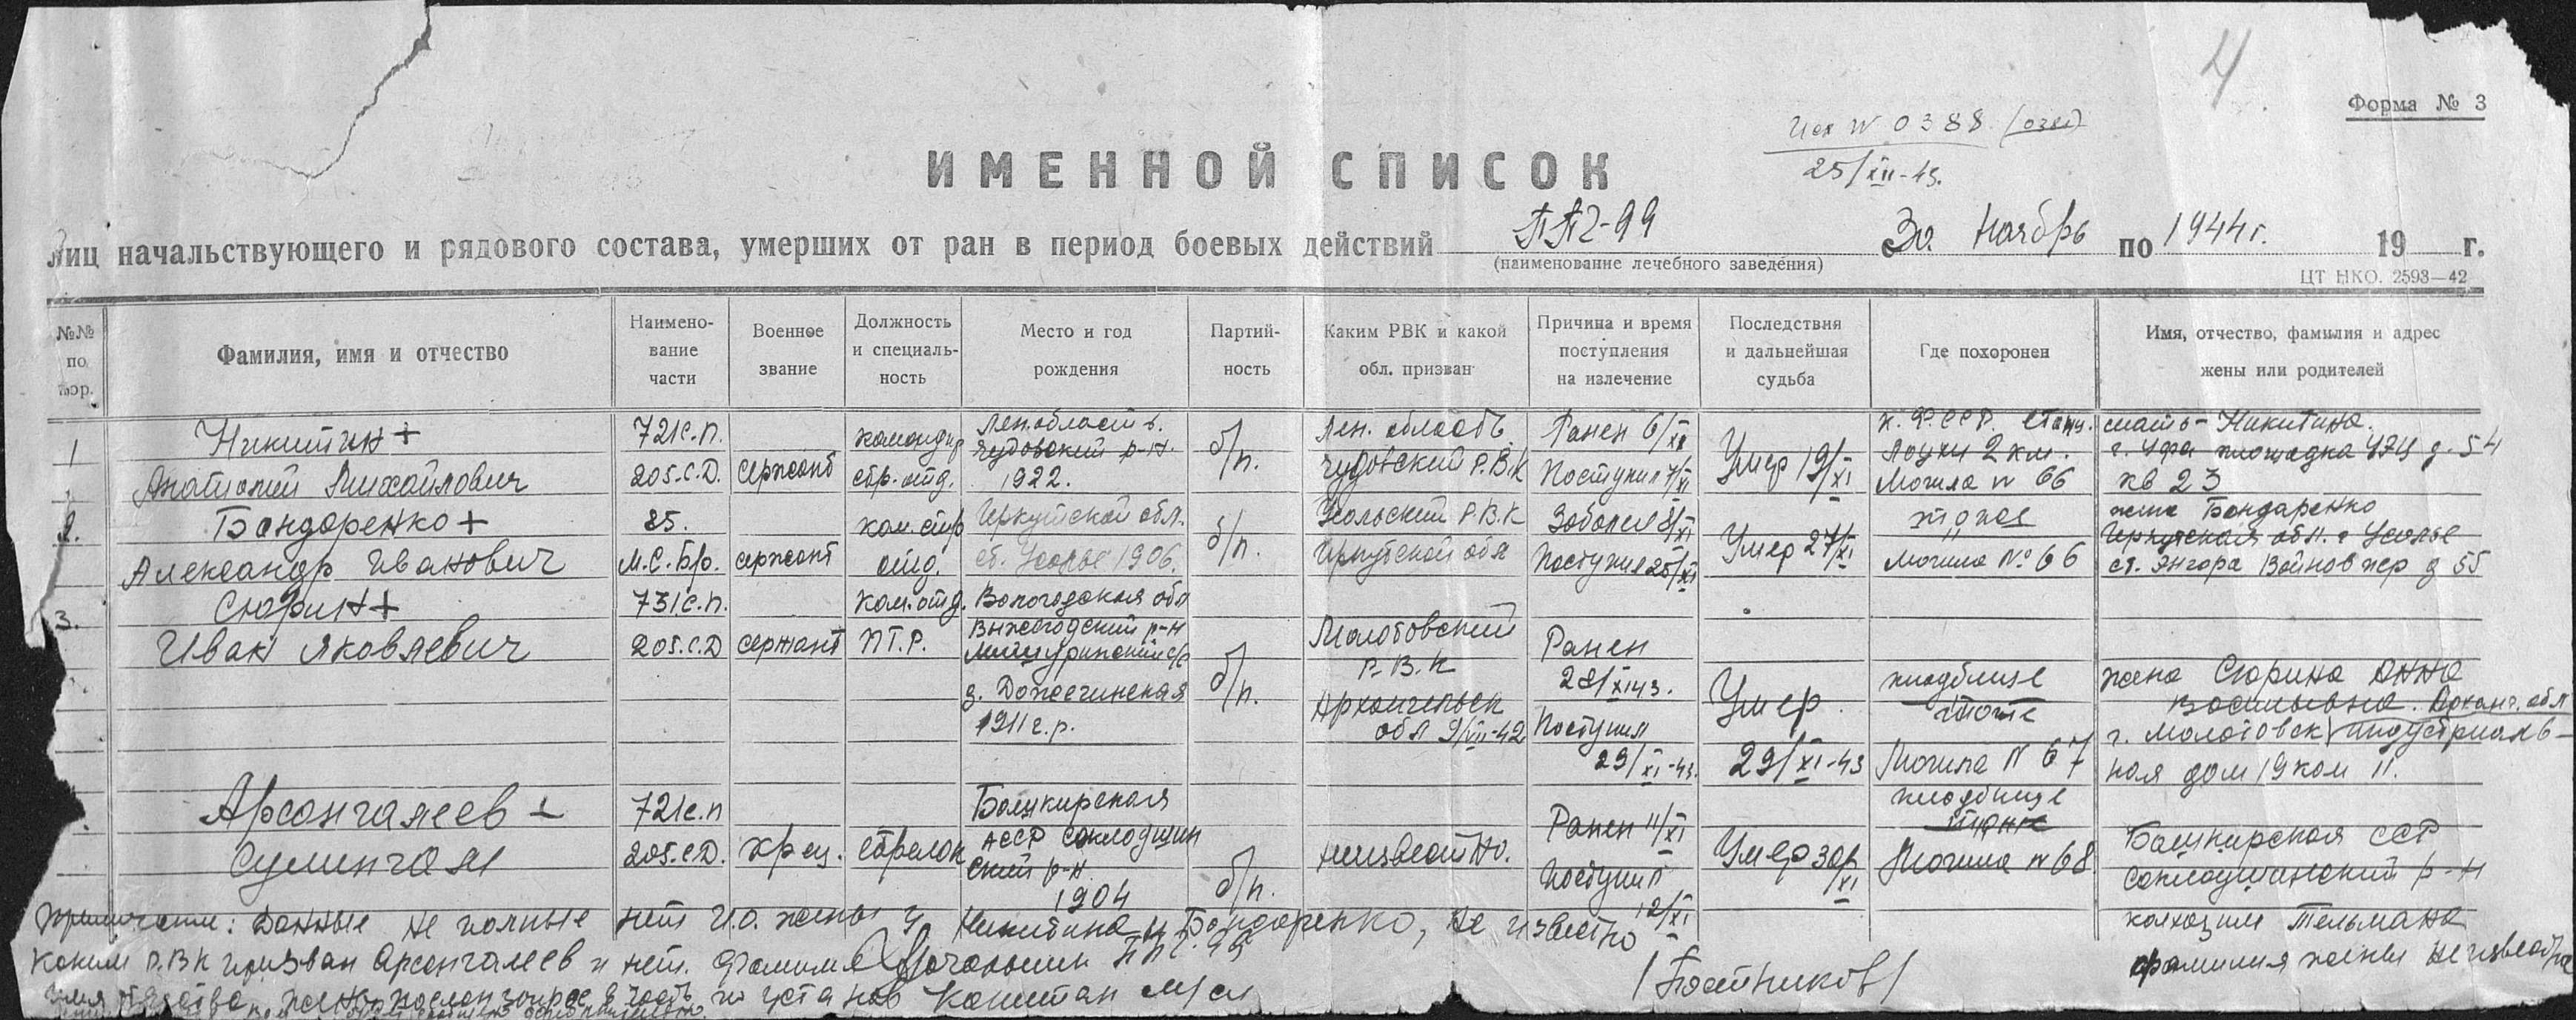 4
Форма № 3
Исх № 0388
25/XII-43.
ИМЕННОЙ СПИСОК
лиц начальствующего и рядового состава, умерших от ран в период боевых действий ППГ-99 с За Ноябрь по 1944 г. 19 г.
(наименование лечебного заведения)
ЦТ НКО. 2593—42
№№ по пор.
Фамилия, имя и отчество
Наимено-
вание
части
Военное
звание
Должность
и специаль-
ность
Место и год
рождения
Партий-
ность
Каким РВК и какой
обл. призван
Причина и время
поступления
на излечение
Последствия
и дальнейшая
судьба
Где похоронен
Имя, отчество, фамилия и адрес
жены или родителей
1
Никитин +
Анатолий Михайлович
721 с.п.
205. С.Д.
сержант
командир
стр. отд.
Лен. область.
Чудовский р-н.
1922.
б/п.
Лен. область
Чудовский Р.В.К
Ранен 6/XI
Поступил 7/XI
Умер 19/XI
К. Ф. ССР. станц.
Лоухи 2 км.
Могила № 66
мать - Никитина.
г. Уфа площадка УЗЦ д. 54
кв 23
2.
Бондаренко +
Александр Иванович
85.
М.С.Бр.
сержант
ком. стр
отд.
Иркутской обл.
ст. Усолье 1906.
б/п.
Усольский Р.В.К
Иркутской обл
Заболел 8/XI
Поступил 25/XI
Умер 27/XI
Могила № 66
жена Бондаренко
Иркутская обл. г Усолье
ст. Ангора д 55
3.
Сюрин +
Иван Яковлевич
731 с.п.
205. С.Д
сержант
ком. отд.
ПТ.Р.
Вологодская обл
р-н
с/с
д.
1911 г.р.
б/п.
Молотовский
Р.В.К
Архангельск
обл 9/VII-42
Ранен
28/XI 43.
Поступил
29/XI-43.
Умер.
29/XI-43
кладбище
тоже
Могила № 67
жена Сюрина Анна
Васильевна. Арханг. обл
г. Молотовск Индустриаль-
ная дом 19 ком 11.
Арсонгалеев +
Сулингали
721 с.п
205. С.Д.
кр-ец.
стрелок
Башкирская
АССР
ский р-н.
1904
б/п.
неизвестно.
Ранен 11/XI
Поступил
12/XI
Умер 30/XI
кладбище
Могила № 68
Башкирская ССР
р-н
колхоз им Тельмана
фамилия жены неизвестна
Примечание: Данные не полные нет И.О. жены у Никитина и Бондаренко, не известно
каким Р.В.К призван Арсонгалеев и нет. фамилия
Начальник ППГ-99
имя жены послан запрос в часть
Капитан м/сл
/Постников/